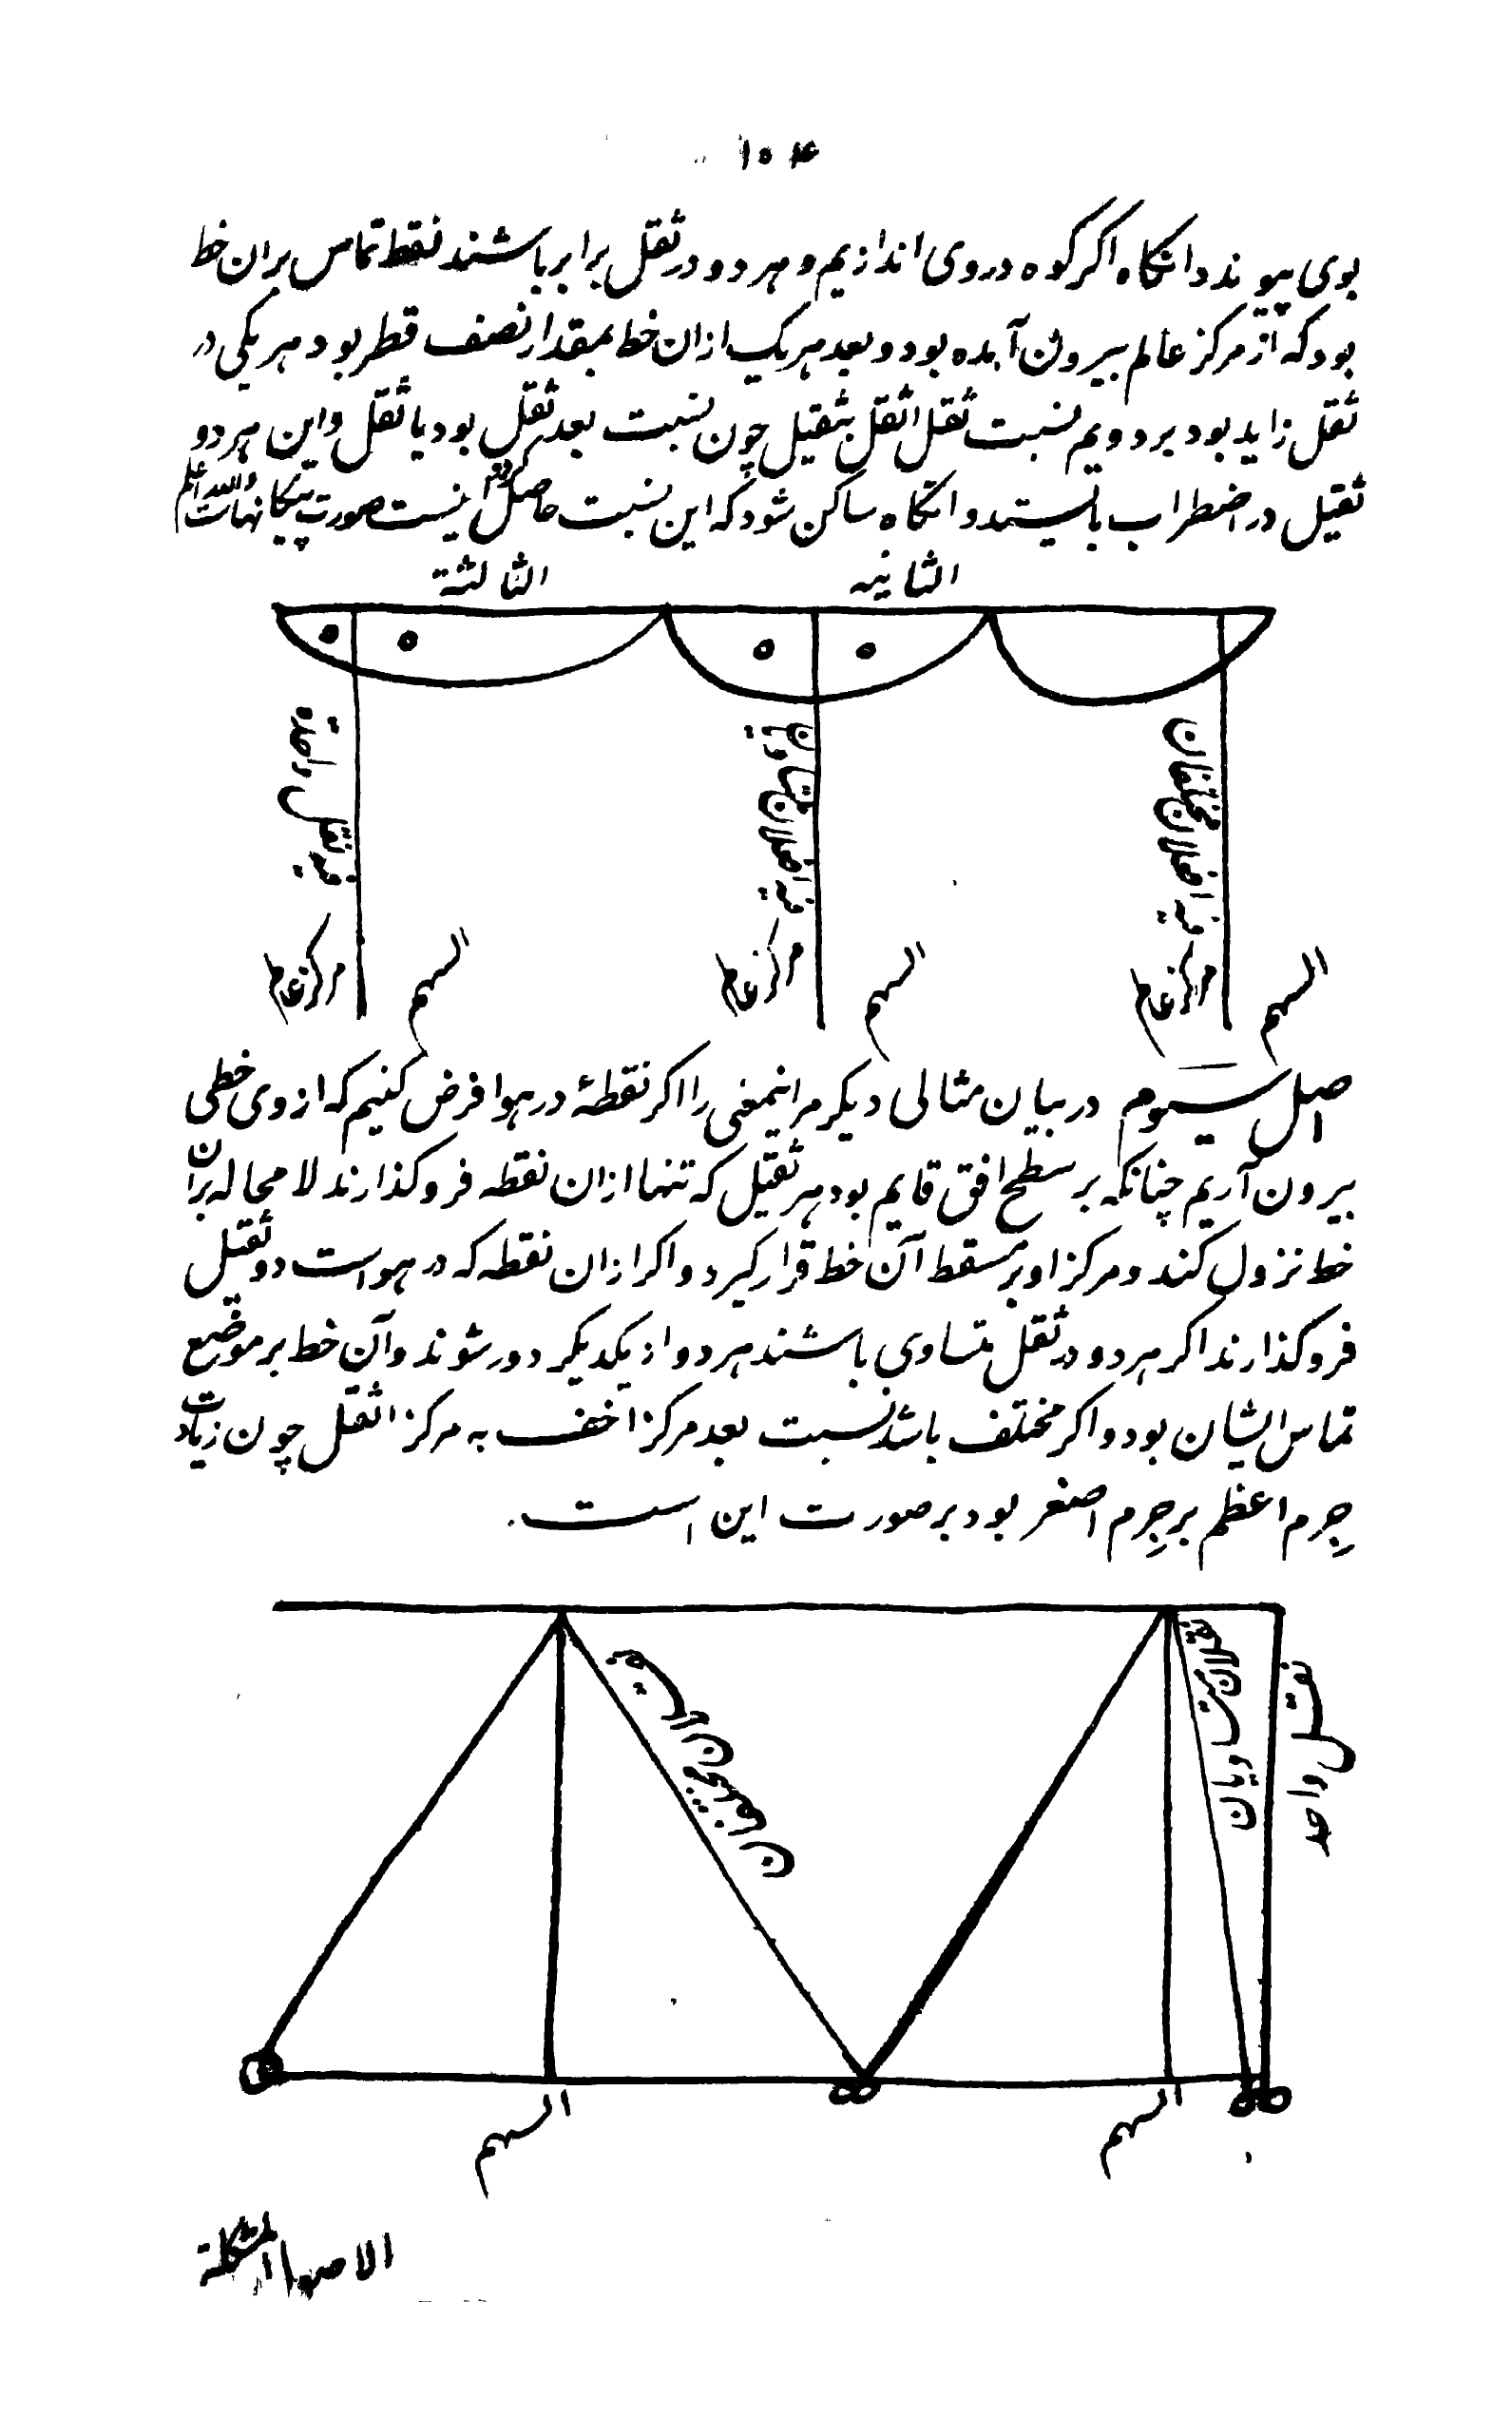 ۱۰۴
بوی پیوندد وانگاه اگر گوه دروی اندازیم و هر دو در ثقل برابر باشند نقط تماس بران خط
بود که از مرکز عالم بیرون آمده بود و بعد هریک ازان خط بمقدار نصف قطر بود هر یکی در
ثقل زاید بود بر دویم نسبت ثقل اثقل بثقیل چون نسبت بعد ثقل بود با ثقل واین هر دو
ثقیل در اضطراب بایستد و انگاه ساکن شود که این نسبت حاصل نیست صورت والله اعلم
الثانیه الثالثة
السهم
مرکز عالم
السهم
مرکز عالم
السهم
مرکز عالم
اصل سیوم در بیان مثالی دیگر مر اینمعنی را اگر نقطهٔ در هوا فرض کنیم که از وی خطی
بیرون آریم چنانکه بر سطح افق قایم بود هر ثقیل که تنها ازان نقطه فرو گذارند لا محاله بران
خط نزول کند و مرکز او بر مسقط آن خط قرار گیرد و اگر ازان نقطه که در هواست دو ثقیل
فرو گذارند اگر هر دو در ثقل متساوی باشند هر دو از یکدیگر دور شوند و آن خط بر موضع
تماس ایشان بود و اگر مختلف باشد نسبت بعد مرکز اخف به مرکز اثقل چون زیادت
جِرم اعظم بر جِرم اصغر بود بر صورت این است.
ثقل واحد
ثقلان متساویان
السهم
السهم
الاصول المشکلة